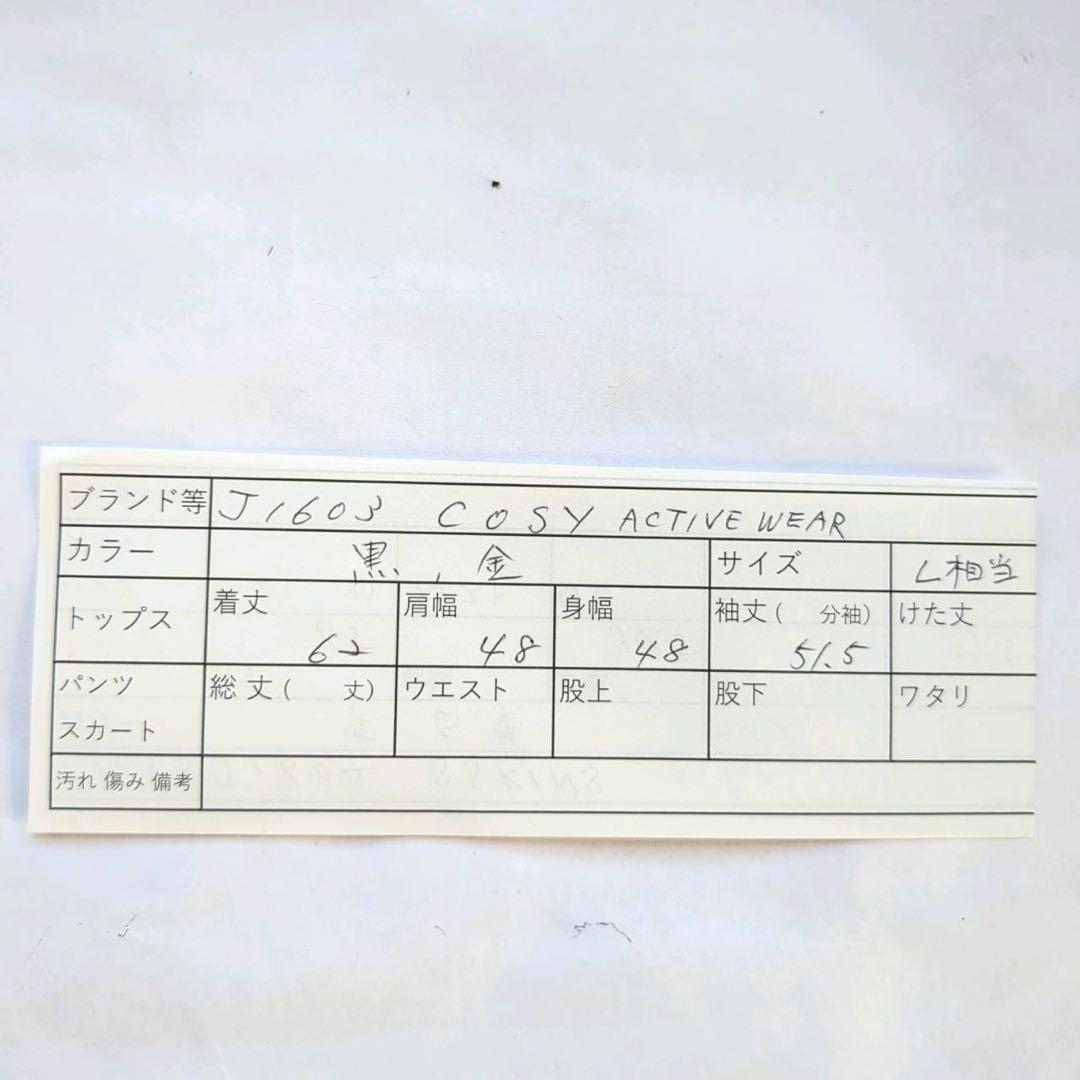 ブランド等 J1603 COSY ACTIVE WEAR
カラー 黒, 金 サイズ L相当
トップス 着丈 62 肩幅 48 身幅 48 袖丈( 分袖) 51.5 けた丈
パンツ スカート 総丈( 丈) ウエスト 股上 股下 ワタリ
汚れ 傷み 備考